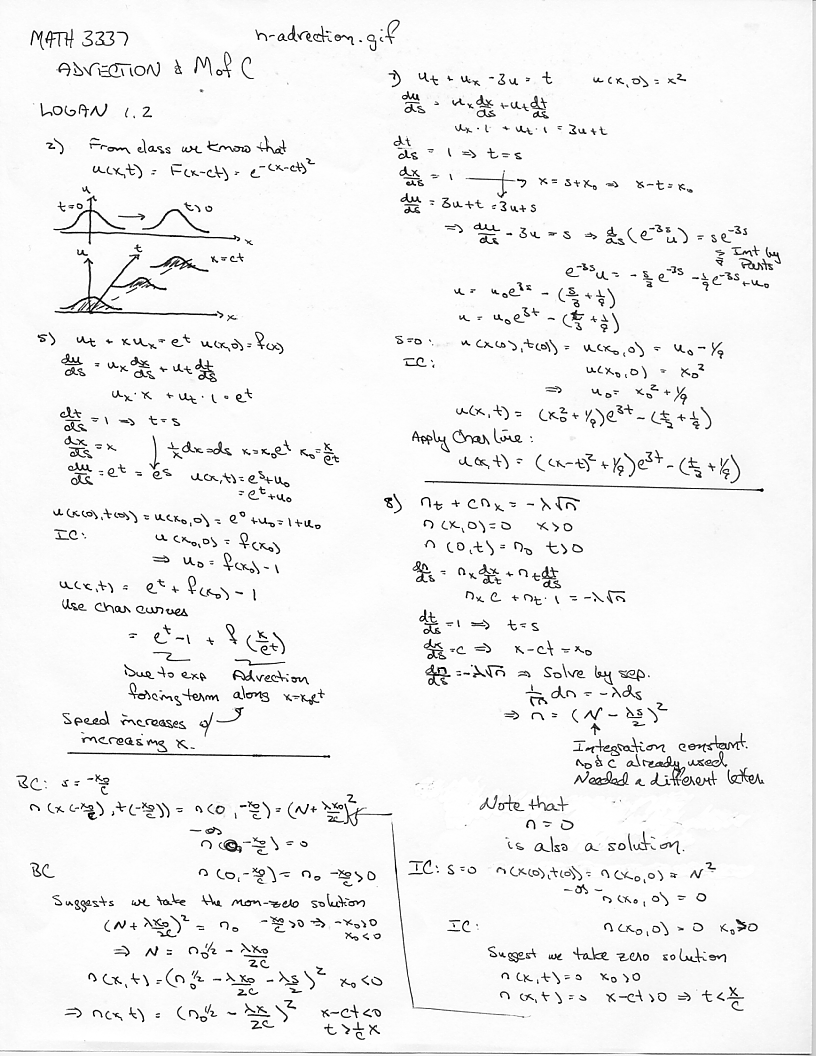 MATH 3337
n-advection.gif
ADVECTION & M of C
LOGAN 1.2
2) From class we know that
u(x,t) = F(x-ct) = e^{-(x-ct)^2}
u
t=0
t>0
x
u
t
x=ct
x
5) u_t + x u_x = e^t u(x,0) = f(x)
du/ds = u_x dx/ds + u_t dt/ds
u_x · x + u_t · 1 = e^t
dt/ds = 1 ⇒ t=s
dx/ds = x 1/x dx = ds x = x_0 e^t x_0 = x/e^t
du/ds = e^t = e^s u(x,t) = e^s + u_0
= e^t + u_0
u(x(0),t(0)) = u(x_0,0) = e^0 + u_0 = 1 + u_0
IC: u(x_0,0) = f(x_0)
⇒ u_0 = f(x_0) - 1
u(x,t) = e^t + f(x_0) - 1
Use Char curves
= e^t - 1 + f(x/e^t)
Due to exp Advection
forcing term along x=x_0e^t
Speed increases w/
increasing x.
7) u_t + u_x - 3u = t u(x,0) = x^2
du/ds = u_x dx/ds + u_t dt/ds
u_x · 1 + u_t · 1 = 3u+t
dt/ds = 1 ⇒ t=s
dx/ds = 1 → x = s+x_0 ⇒ x-t = x_0
du/ds = 3u+t = 3u+s
⇒ du/ds - 3u = s ⇒ d/ds (e^{-3s}u) = se^{-3s}
Int by
Parts
e^{-3s}u = -s/3 e^{-3s} - 1/9 e^{-3s} + u_0
u = u_0e^{3s} - (s/3 + 1/9)
u = u_0e^{3t} - (t/3 + 1/9)
s=0: u(x(0),t(0)) = u(x_0,0) = u_0 - 1/9
IC: u(x_0,0) = x_0^2
⇒ u_0 = x_0^2 + 1/9
u(x,t) = (x_0^2 + 1/9)e^{3t} - (t/3 + 1/9)
Apply Char line:
u(x,t) = ((x-t)^2 + 1/9)e^{3t} - (t/3 + 1/9)
8) n_t + cn_x = -λ√n
n(x,0)=0 x>0
n(0,t)=n_0 t>0
dn/ds = n_x dx/dt + n_t dt/ds
n_x c + n_t · 1 = -λ√n
dt/ds = 1 ⇒ t=s
dx/ds = c ⇒ x-ct = x_0
dn/ds = -λ√n ⇒ Solve by sep.
1/√n dn = -λds
⇒ n = (N - λs/2)^2
Integration constant.
n_0 & c already used
Needed a different letter.
Note that
n = 0
is also a solution.
IC: s=0 n(x(0),t(0)) = n(x_0,0) = N^2
-or- n(x_0,0) = 0
IC: n(x_0,0) = 0 x_0>0
Suggest we take zero solution
n(x,t)=0 x_0>0
n(x,t)=0 x-ct>0 ⇒ t<x/c
BC: s = -x_0/c
n(x(-x_0/c), t(-x_0/c)) = n(0, -x_0/c) = (N + λx_0/2c)^2
-or-
n(0, -x_0/c) = 0
BC n(0, -x_0/c) = n_0 -x_0/c > 0
Suggests we take the non-zero solution
(N + λx_0/2c)^2 = n_0 -x_0/c > 0 ⇒ -x_0>0
x_0<0
⇒ N = n_0^{1/2} - λx_0/2c
n(x,t) = (n_0^{1/2} - λx_0/2c - λs/2)^2 x_0<0
⇒ n(x,t) = (n_0^{1/2} - λx/2c)^2 x-ct<0
t > 1/c x